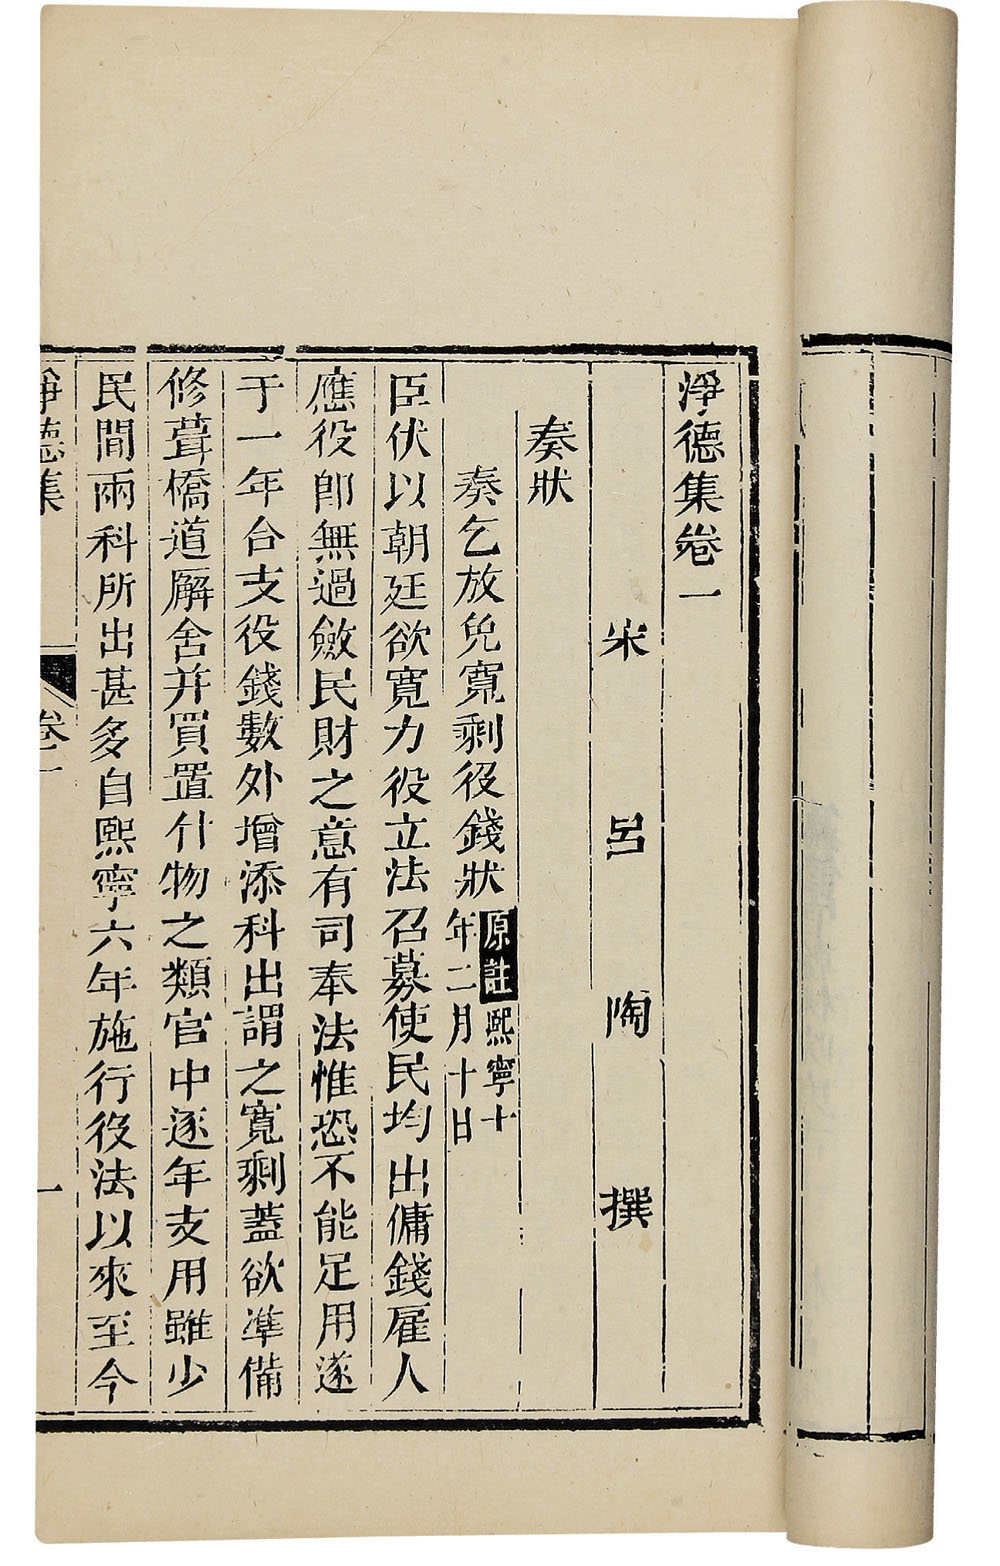 淨德集卷一
宋 呂 陶 撰
奏狀
奏乞放免寬剩役錢狀 原註熙寧十年二月十日
臣伏以朝廷欲寬力役立法召募使民均出傭錢雇人
應役郎無過斂民財之意有司奉法惟恐不能足用遂
于一年合支役錢數外增添科出謂之寬剩蓋欲準備
修葺橋道廨舍并買置什物之類官中逐年支用雖少
民間兩科所出甚多自熙寧六年施行役法以來至今
淨德集 卷一 一